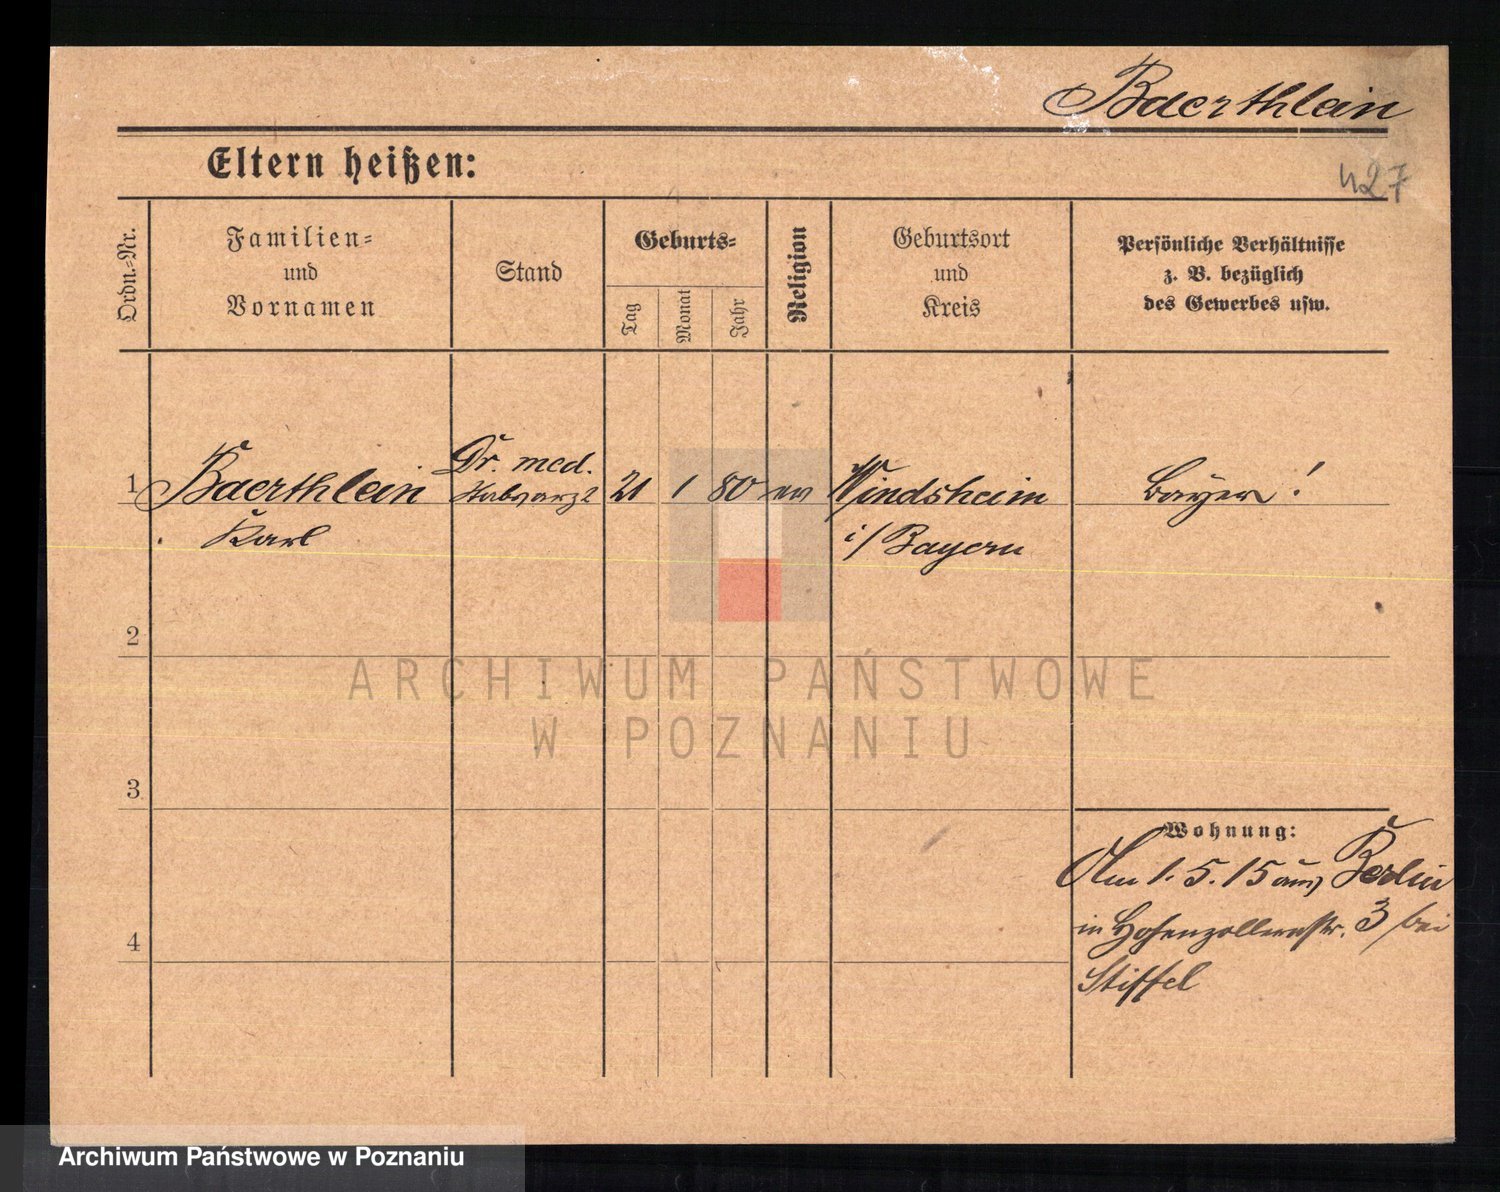 Baerthlein
Eltern heißen:
427
Ordn.=Nr.
Familien=
und
Vornamen
Stand
Geburts=
Tag
Monat
Jahr
Religion
Geburtsort
und
Kreis
Persönliche Verhältnisse
z. B. bezüglich
des Gewerbes usw.
1 Baerthlein
Karl
Dr. med.
Stabsarzt
21 1 80 ev
Windsheim
i/ Bayern
Bayer!
2
3
4
Wohnung:
Am 1. 5. 15 aus Berlin
in Hohenzollernstr. 3 bei
Stiffel
ARCHIWUM PAŃSTWOWE
W POZNANIU
Archiwum Państwowe w Poznaniu